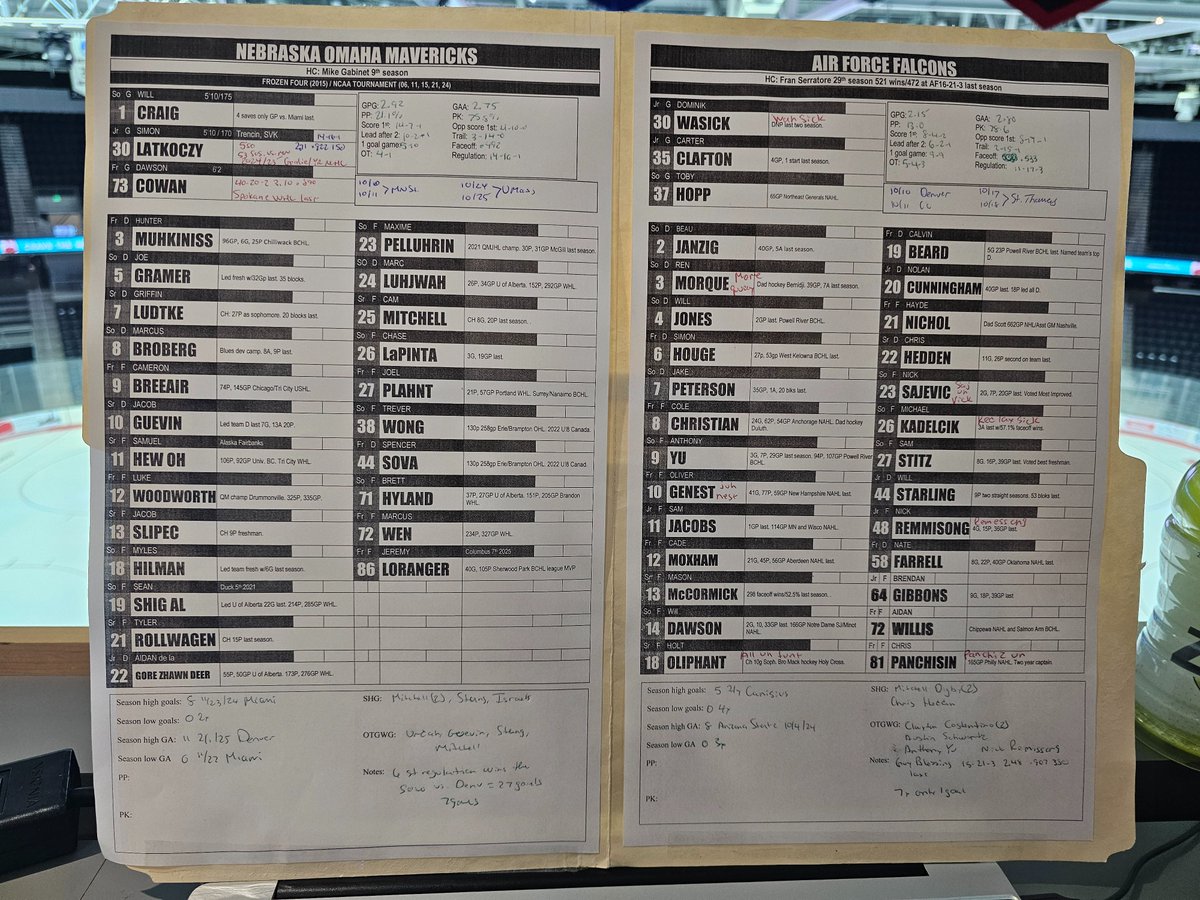 NEBRASKA OMAHA MAVERICKS
HC: Mike Gabinet 9th season
FROZEN FOUR (2015) / NCAA TOURNAMENT (06, 11, 15, 21, 24)
So G WILL 5'10/175
1 CRAIG 4 saves only GP vs. Miami last.
Jr G SIMON 5'10/170 Trencin, SVK
30 LATKOCZY
Fr G DAWSON 62
73 COWAN
Spokane WHL last
GPG: 2.92 GAA: 2.75
PP: 21.1% PK: 75.8%
Score 1st: 14-7-1 Opp score 1st: 4-10-0
Lead after 2: 10-2-1 Trail: 3-14-0
1 goal game: Faceoff:
OT: 4-1 Regulation: 14-16-1
10/10 10/11 > MNSU 10/24 10/25 > UMass
Fr D HUNTER
3 MUHKINISS 96GP, 6G, 25P Chilliwack BCHL.
So D JOE
5 GRAMER Led fresh w/32Gp last. 35 blocks.
Sr D GRIFFIN
7 LUDTKE CH: 27P as sophomore. 20 blocks last.
So D MARCUS
8 BROBERG Blues dev camp. 8A, 9P last.
Fr F CAMERON
9 BREEAIR 74P, 145GP Chicago/Tri City USHL.
Sr D JACOB
10 GUEVIN Led team D last 7G, 13A 20P.
Sr F SAMUEL Alaska Fairbanks
11 HEW OH 106P, 92GP Univ. BC, Tri City WHL.
Fr F LUKE
12 WOODWORTH QM champ Drummonville, 325P, 335GP.
Sr F JACOB
13 SLIPEC CH 9P freshman.
So F MYLES
18 HILMAN Led team fresh w/6G last season.
So F SEAN Duck 5th 2021
19 SHIG AL Led U of Alberta 22G last. 214P, 285GP WHL.
Sr F TYLER
21 ROLLWAGEN CH 15P last season.
Jr D AIDAN de la
22 GORE ZHAWN DEER 55P, 50GP U of Alberta. 173P, 276GP WHL.
So F MAXIME
23 PELLUHRIN 2021 QMJHL champ. 30P, 31GP McGill last season.
SO D MARC
24 LUHJWAH 26P, 34GP U of Alberta. 152P, 292GP WHL.
Sr F CAM
25 MITCHELL CH 8G, 20P last season.
So F CHASE
26 LaPINTA 3G, 19GP last.
Fr F JOEL
27 PLAHNT 21P, 57GP Portland WHL. Surrey/Nanaimo BCHL.
So F TREVER
38 WONG 130p 258gp Erie/Brampton OHL. 2022 U18 Canada.
Fr D SPENCER
44 SOVA 130p 258gp Erie/Brampton OHL. 2022 U18 Canada.
So F BRETT
71 HYLAND 37P, 27GP U of Alberta. 151P, 205GP Brandon WHL.
Fr F MARCUS
72 WEN 234P, 327GP WHL.
Fr F JEREMY Columbus 7th 2025
86 LORANGER 40G, 105P Sherwood Park BCHL league MVP
Season high goals: 8 11/23/24 Miami
Season low goals: 0 2x
Season high GA: 11 2/1/25 Denver
Season low GA 0 11/22 Miami
PP:
PK:
SHG: Mitchell(2), Stens, Israels
OTGWG: Urban, Guevin, Stens, Mitchell
Notes:
AIR FORCE FALCONS
HC: Fran Serratore 29th season 521 wins/472 at AF16-21-3 last season
Jr G DOMINIK
30 WASICK Wah Sick DNP last two season.
Jr G CARTER
35 CLAFTON 4GP, 1 start last season.
So G TOBY
37 HOPP 65GP Northeast Generals NAHL.
GPG: 2.15 GAA: 2.80
PP: 13.0 PK: 78.6
Score 1st: Opp score 1st: 8-17-1
Lead after 2: Trail:
1 goal game: 9-9 Faceoff: .533
OT: 5-4-3 Regulation: 11-17-3
10/10 Denver 10/17
10/11 CC 10/18 > St. Thomas
So D BEAU
2 JANZIG 40GP, 5A last season.
So D REN
3 MORQUE Dad hockey Bemidji. 39GP, 7A last season.
So D WILL
4 JONES 2GP last. Powell River BCHL.
Fr D SIMON
6 HOUGE 27p, 53gp West Kelowna BCHL last.
So D JAKE
7 PETERSON 35GP, 1A, 20 blks last.
Fr F COLE
8 CHRISTIAN 24G, 62P, 54GP Anchorage NAHL. Dad hockey Duluth.
So F ANTHONY
9 YU 3G, 7P, 29GP last season. 94P, 107GP Powell River BCHL.
Fr F OLIVER
10 GENEST juh nest 41G, 77P, 59GP New Hampshire NAHL last.
Jr F SAM
11 JACOBS 1GP last. 114GP MN and Wisco NAHL.
Fr F CADE
12 MOXHAM 21G, 45P, 56GP Aberdeen NAHL last.
Sr F MASON
13 McCORMICK 298 faceoff wins/52.5% last season.
So F Will
14 DAWSON 2G, 10, 33GP last. 166GP Notre Dame SJ/Minot NAHL.
Sr F HOLT
18 OLIPHANT All uh funt Ch 10g Soph. Bro Mack hockey Holy Cross.
Fr D CALVIN
19 BEARD 5G 23P Powell River BCHL last. Named team's top D.
Jr D NOLAN
20 CUNNINGHAM 40GP last. 18P led all D.
Fr F HAYDE
21 NICHOL Dad Scott 662GP NHL/Asst GM Nashville.
Sr D CHRIS
22 HEDDEN 11G, 26P second on team last.
So F NICK
23 SAJEVIC Saj uh vick 2G, 7P, 20GP last. Voted Most Improved.
So F MICHAEL
26 KADELCIK 3A last w/57.1% faceoff wins.
So F SAM
27 STITZ 8G, 16P, 39GP last. Voted best freshman.
Jr D WILL
44 STARLING 9P two straight seasons. 53 bloks last.
Jr F NICK
48 REMMISONG 4G, 15P, 36GP last.
Fr D NATE
58 FARRELL 5G, 22P, 40GP Oklahoma NAHL last.
Jr F BRENDAN
64 GIBBONS 9G, 18P, 39GP last.
Fr F AIDAN
72 WILLIS Chippewa NAHL and Salmon Arm BCHL.
Fr F CHRIS
81 PANCHISIN 165GP Philly NAHL. Two year captain.
Season high goals: 5 2x Canisius
Season low goals: 0 4x
Season high GA: 8 Arizona State 10/4/24
Season low GA 0 3x
PP:
PK:
SHG: Mitchell Digby(2)
Chris Hedden
OTGWG: Clayton Cosentino(2)
Austin Schwartz
Anthony Yu Nick Remissong
Notes: Guy Blessing 15-21-3 2.48 .907
last